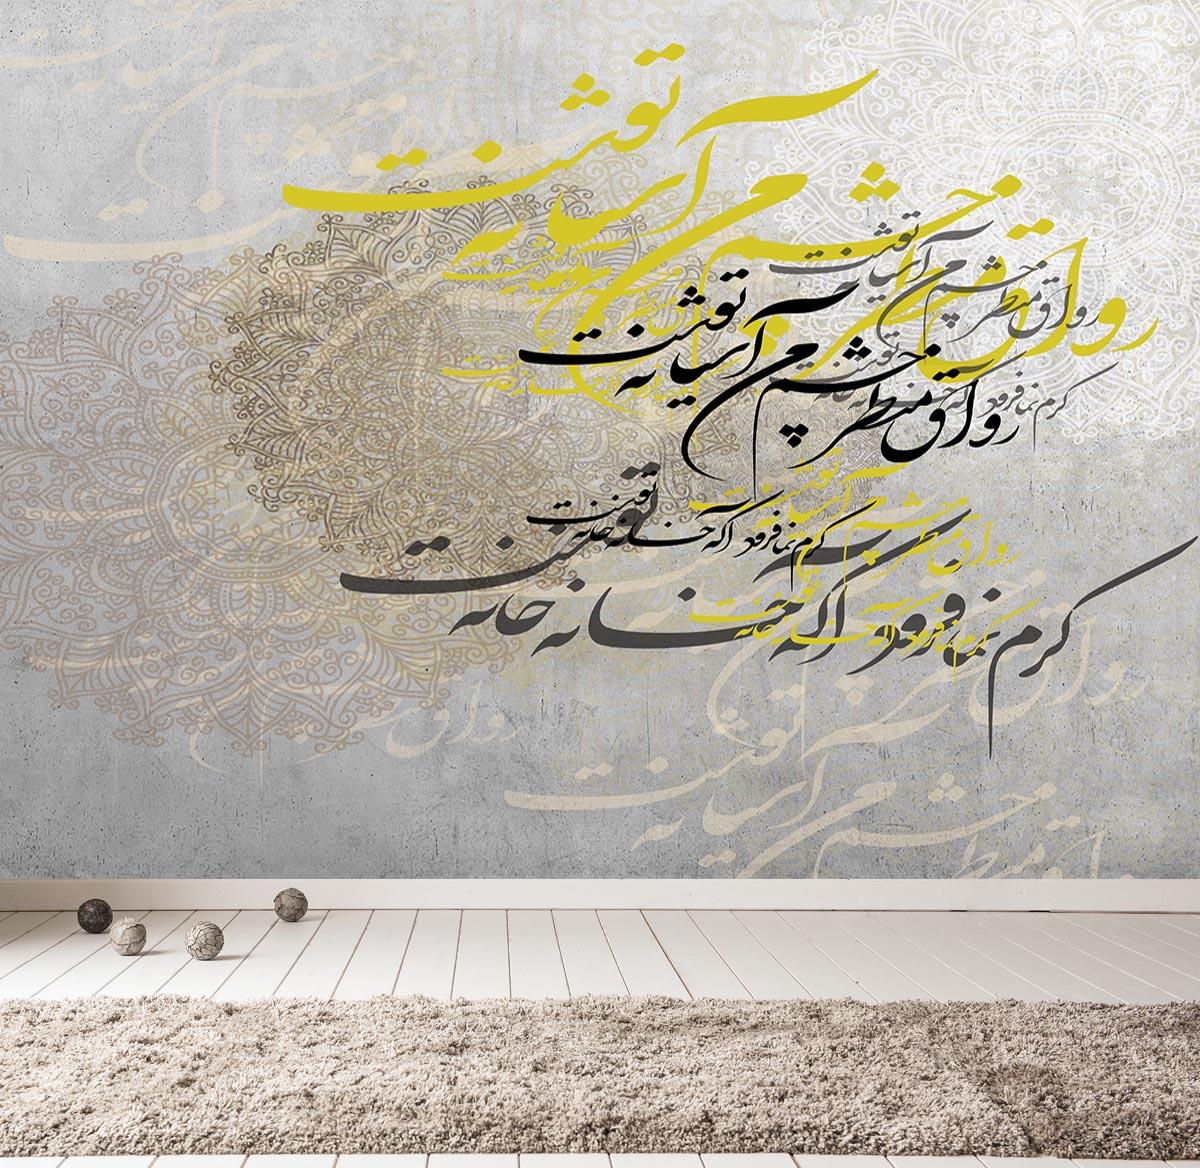 رواق منظر چشم من آشیانه توست
رواق منظر چشم من آشیانه توست
رواق منظر چشم من آشیانه توست
کرم نما و فرود آ که خانه خانه توست
کرم نما و فرود آ که خانه خانه توست
رواق منظر چشم من آشیانه توست
کرم نما و فرود آ که خانه خانه توست
کرم نما و فرود آ که خانه خانه توست
رواق منظر چشم من آشیانه توست